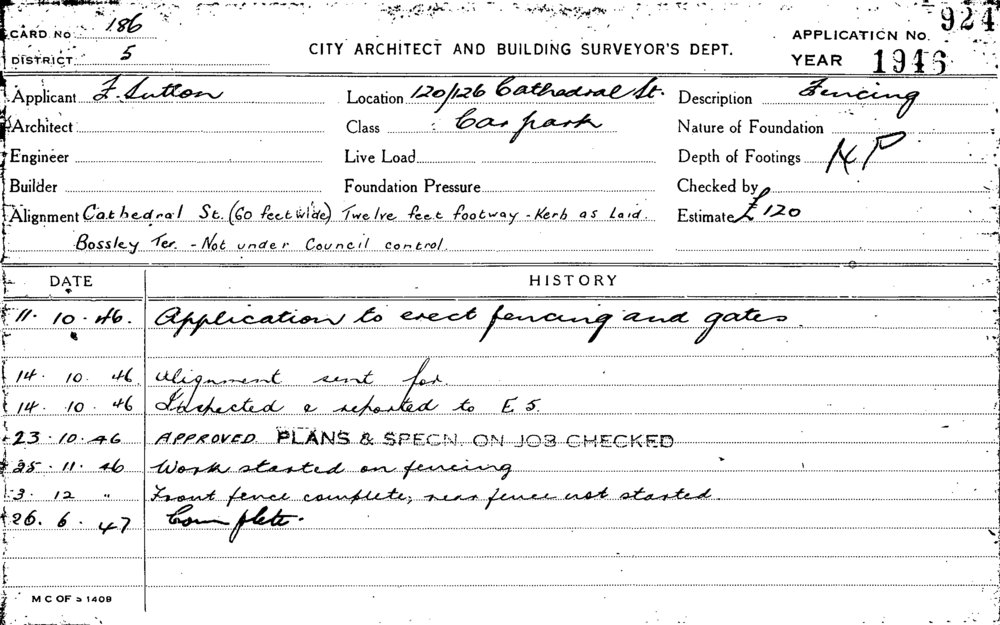 CARD No 186
DISTRICT 5
CITY ARCHITECT AND BUILDING SURVEYOR'S DEPT.
APPLICATION No. 924
YEAR 1946
Applicant F. Sutton
Location 120/126 Cathedral St.
Description Fencing
Architect
Class Car park
Nature of Foundation
Engineer
Live Load
Depth of Footings
Builder
Foundation Pressure
Checked by
Alignment Cathedral St. (60 feet wide) Twelve feet footway - Kerb as Laid.
Estimate £120
Bossley Ter. - Not under Council control.
DATE HISTORY
11. 10. 46. Application to erect fencing and gates
14. 10. 46 Alignment sent for.
14. 10. 46 Inspected & reported to E 5.
23. 10. 46 APPROVED. PLANS & SPECN. ON JOB CHECKED
25. 11. 46 Work started on fencing
3. 12 " Front fence complete, rear fence not started.
26. 6. 47 Complete.
M C OF S 1409